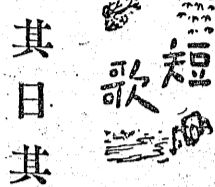 短歌
其日其